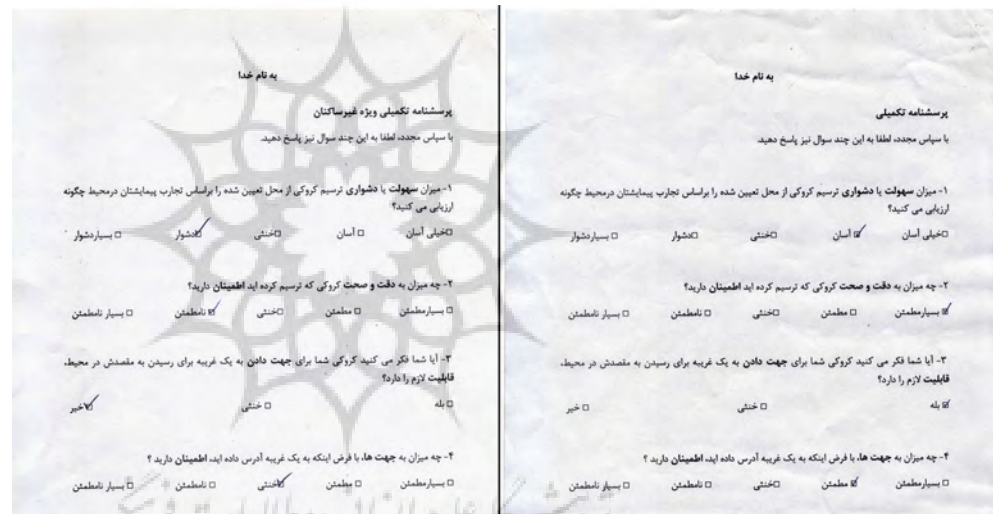 به نام خدا
پرسشنامه تکمیلی
با سپاس مجدد، لطفا به این چند سوال نیز پاسخ دهید.
۱- میزان سهولت یا دشواری ترسیم کروکی از محل تعیین شده را براساس تجارب پیمایشتان درمحیط چگونه
ارزیابی می کنید؟
□خیلی آسان □ آسان □خنثی □دشوار □ بسیاردشوار
۲- چه میزان به دقت و صحت کروکی که ترسیم کرده اید اطمینان دارید؟
□ بسیارمطمئن □ مطمئن □خنثی □ نامطمئن □ بسیار نامطمئن
۳- آیا شما فکر می کنید کروکی شما برای جهت دادن به یک غریبه برای رسیدن به مقصدش در محیط،
قابلیت لازم را دارد؟
□ بله □ خنثی □ خیر
۴- چه میزان به جهت ها، با فرض اینکه به یک غریبه آدرس داده اید، اطمینان دارید ؟
□ بسیارمطمئن □ مطمئن □خنثی □ نامطمئن □ بسیار نامطمئن
به نام خدا
پرسشنامه تکمیلی ویژه غیرساکنان
با سپاس مجدد، لطفا به این چند سوال نیز پاسخ دهید.
۱- میزان سهولت یا دشواری ترسیم کروکی از محل تعیین شده را براساس تجارب پیمایشتان درمحیط چگونه
ارزیابی می کنید؟
□خیلی آسان □ آسان □خنثی □دشوار □ بسیاردشوار
۲- چه میزان به دقت و صحت کروکی که ترسیم کرده اید اطمینان دارید؟
□ بسیارمطمئن □ مطمئن □خنثی □ نامطمئن □ بسیار نامطمئن
۳- آیا شما فکر می کنید کروکی شما برای جهت دادن به یک غریبه برای رسیدن به مقصدش در محیط،
قابلیت لازم را دارد؟
□ بله □ خنثی □ خیر
۴- چه میزان به جهت ها، با فرض اینکه به یک غریبه آدرس داده اید، اطمینان دارید ؟
□ بسیارمطمئن □ مطمئن □خنثی □ نامطمئن □ بسیار نامطمئن